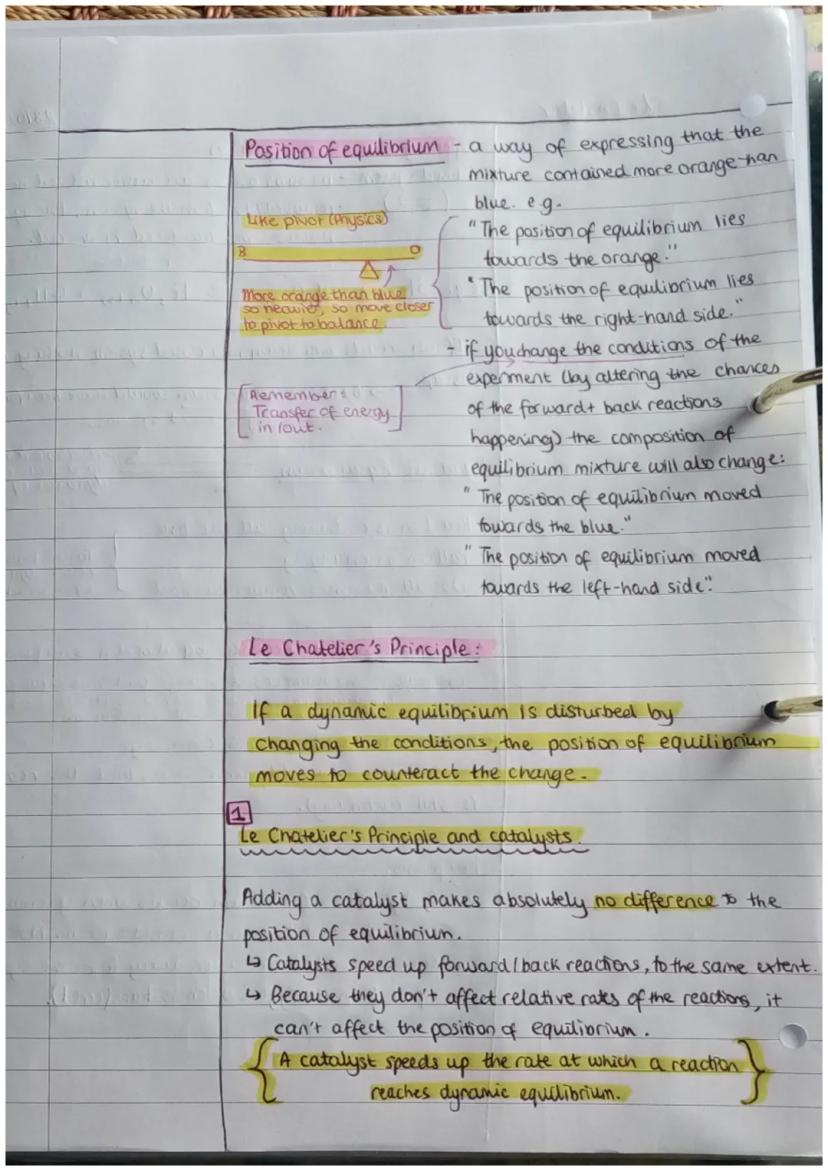 Position of equilibrium - a way of expressing that the
mixture contained more orange than
blue. e.g.
Like pivot (Physics)
B O
More orange than blue
so heavier, so move closer
to pivot to balance.
"The position of equilibrium lies
towards the orange."
"The position of equilibrium lies
towards the right-hand side."
- if you change the conditions of the
experiment (by altering the chances
of the forward + back reactions
happening) the composition of
equilibrium mixture will also change:
[Remember:
Transfer of energy
in/out.]
"The position of equilibrium moved
towards the blue."
"The position of equilibrium moved
towards the left-hand side".
Le Chatelier's Principle:
If a dynamic equilibrium is disturbed by
changing the conditions, the position of equilibrium
moves to counteract the change.
1
Le Chatelier's Principle and catalysts.
Adding a catalyst makes absolutely no difference to the
position of equilibrium.
↳ Catalysts speed up forward/back reactions, to the same extent.
↳ Because they don't affect relative rates of the reactions, it
can't affect the position of equilibrium.
{A catalyst speeds up the rate at which a reaction
reaches dynamic equilibrium.}